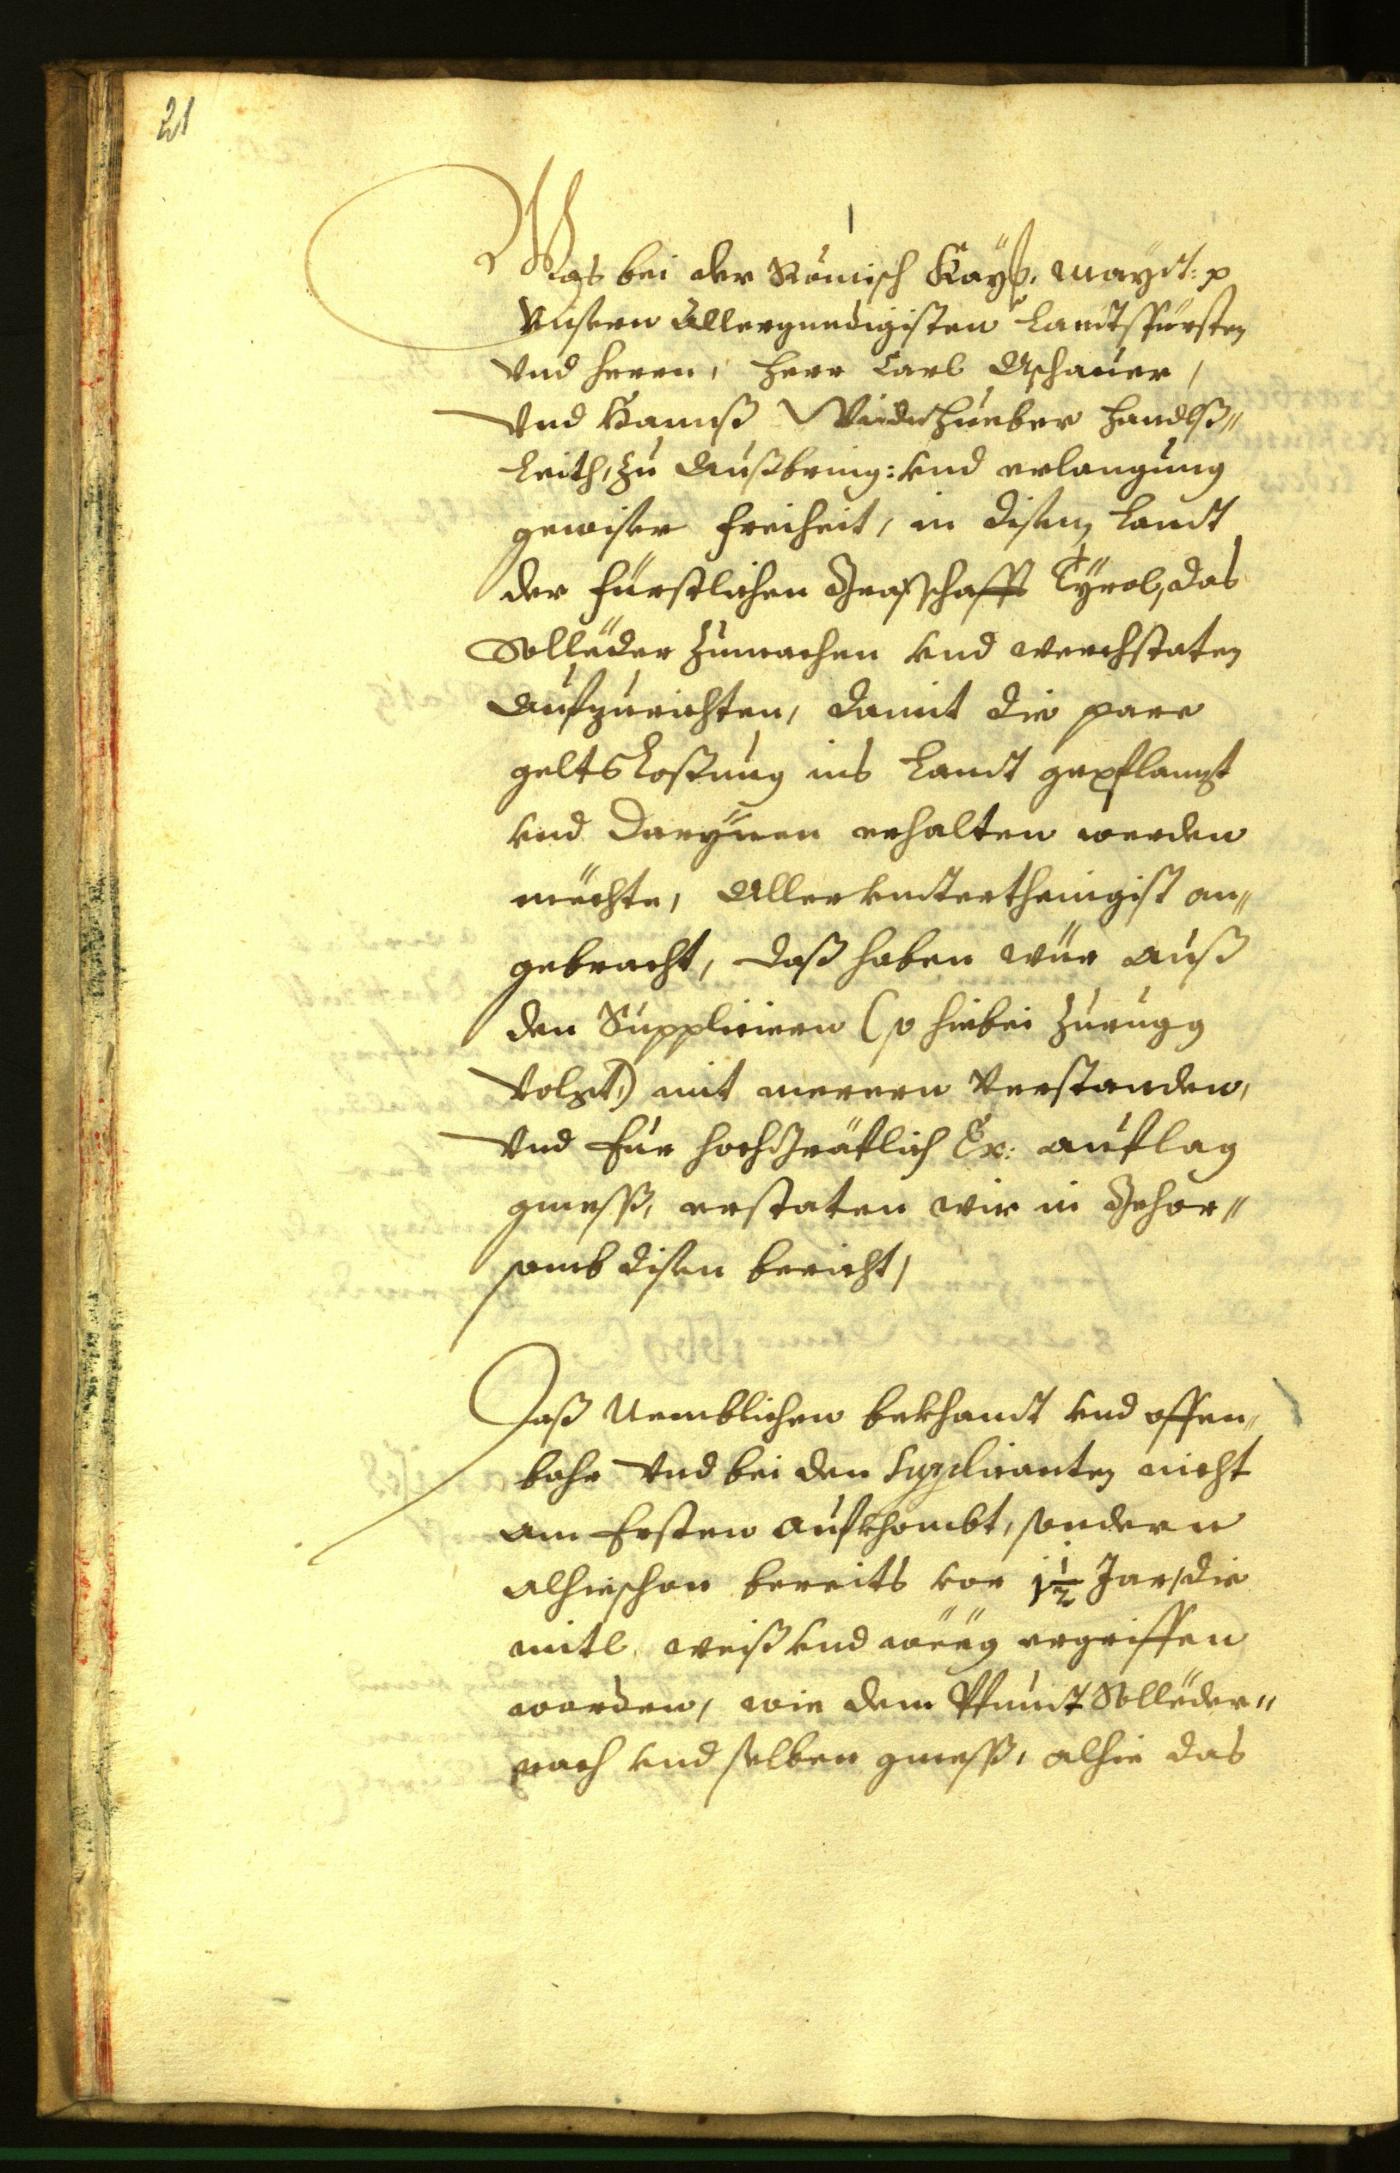 21
1
Was bei der Römisch Kays: Mayst: p
Unsern Allergnedigisten Landtsfürsten
Und Herrn, Herr Carl Aschauer,
Und Hannß Widnhueber Handlß„
Leith, zu Außbring: und erlangung
gewiser Freiheit, in disem Landt
der Fürstlichen Grafschafft Tÿrol, das
Solleder zumachen und werchstaten
Aufzurichten, damit die pare
geltsLosßung ins Landt gepflanzt
und darÿnnen erhalten werden
mechte, Allerundtertheinigist an„
gebracht, daß haben wür auß
den Suppliciern (so hiebei zurugg
Volgt,) mit merern Verstanden,
Und Eur hochGräflich Ex: auflag
gmeß, erstaten wir in Gehor„
samb disen bericht,
Daß Nemblichen bekhandt und offen„
bahr Und bei den Supplicanten nicht
am Ersten aufkhombt, sondern
alhieschon bereits vor 1½ Jar, die
mitl weiß und wëëg ergriffen
worden, wie dem Pfundt Solleder„
nach und selben gmeß, alhie das